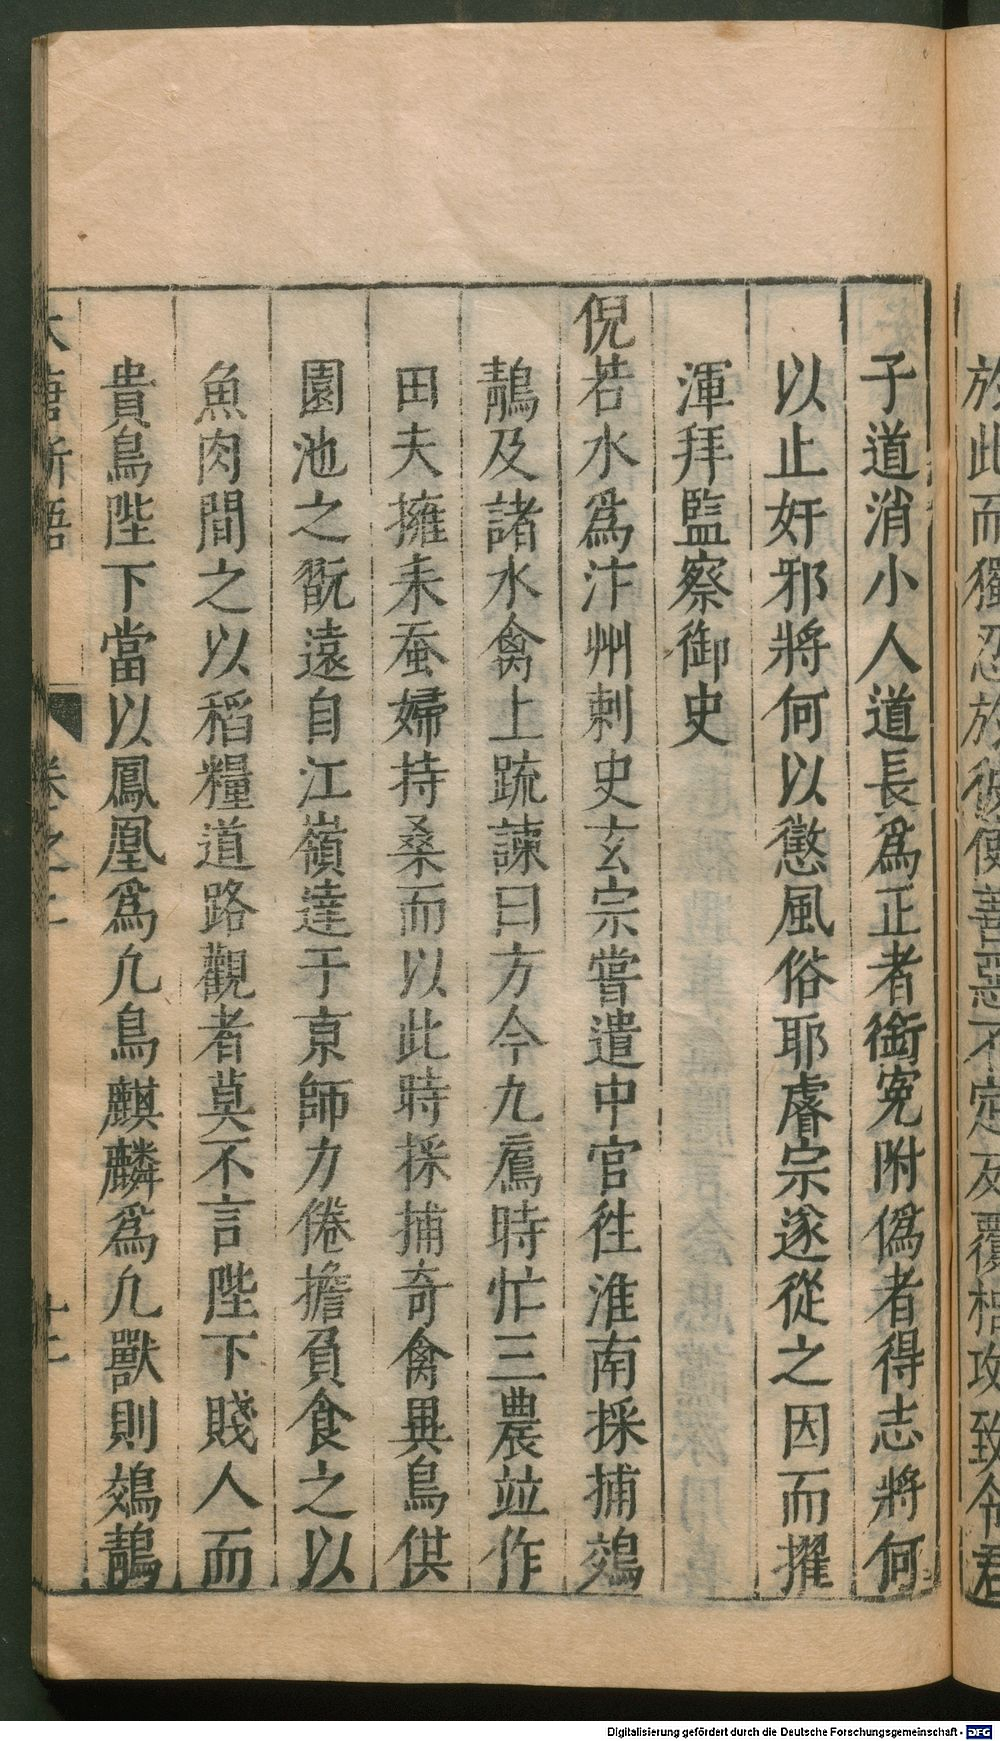 放此而獨忍放彼使善惡不定反覆相攻致令君
子道消小人道長爲正者銜冤附僞者得志將何
以止奸邪將何以懲風俗耶睿宗遂從之因而擢
渾拜監察御史
倪若水爲汴州刺史玄宗嘗遣中官徃淮南採捕鵁
鶄及諸水禽上䟽諫曰方今九鳸時忙三農竝作
田夫擁耒蚕婦持桑而以此時採捕奇禽異鳥供
園池之翫遠自江嶺達于京師力倦擔負食之以
魚肉間之以稻糧道路觀者莫不言陛下賤人而
貴鳥陛下當以鳳凰爲凢鳥麒麟爲凢獸則鵁鶄
大唐新語 卷之二 十二
Digitalisierung gefördert durch die Deutsche Forschungsgemeinschaft - DFG